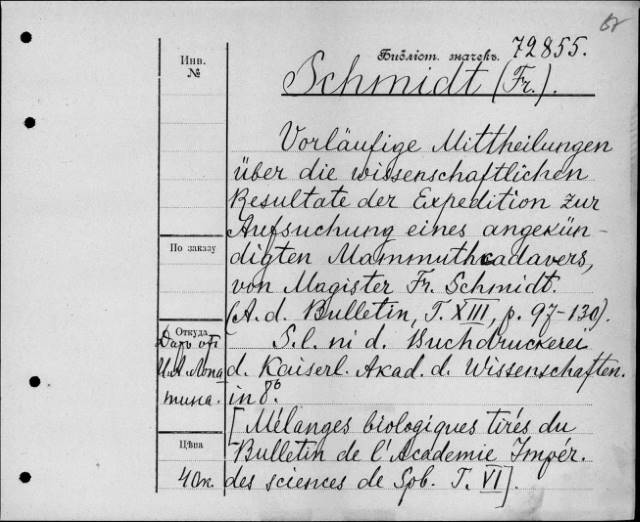 Библіот. значекъ. 72855.
Инв. №
Schmidt (Fr.).
Vorläufige Mittheilungen
über die wissenschaftlichen
Resultate der Expedition zur
Aufsuchung eines angekün-
По заказу
digten Mammuthcadavers,
von Magister Fr. Schmidt.
(A. d. Bulletin, T. XIII, p. 97-130).
Откуда
Даръ отъ
И.А. Лопа
тина.
S. l. ni d. Buchdruckerei
d. Kaiserl. Akad. d. Wissenschaften.
in 8º.
[Mélanges biologiques tirés du
Цѣна
40к.
Bulletin de l'Academie Impér.
des sciences de Spb. T. VI].